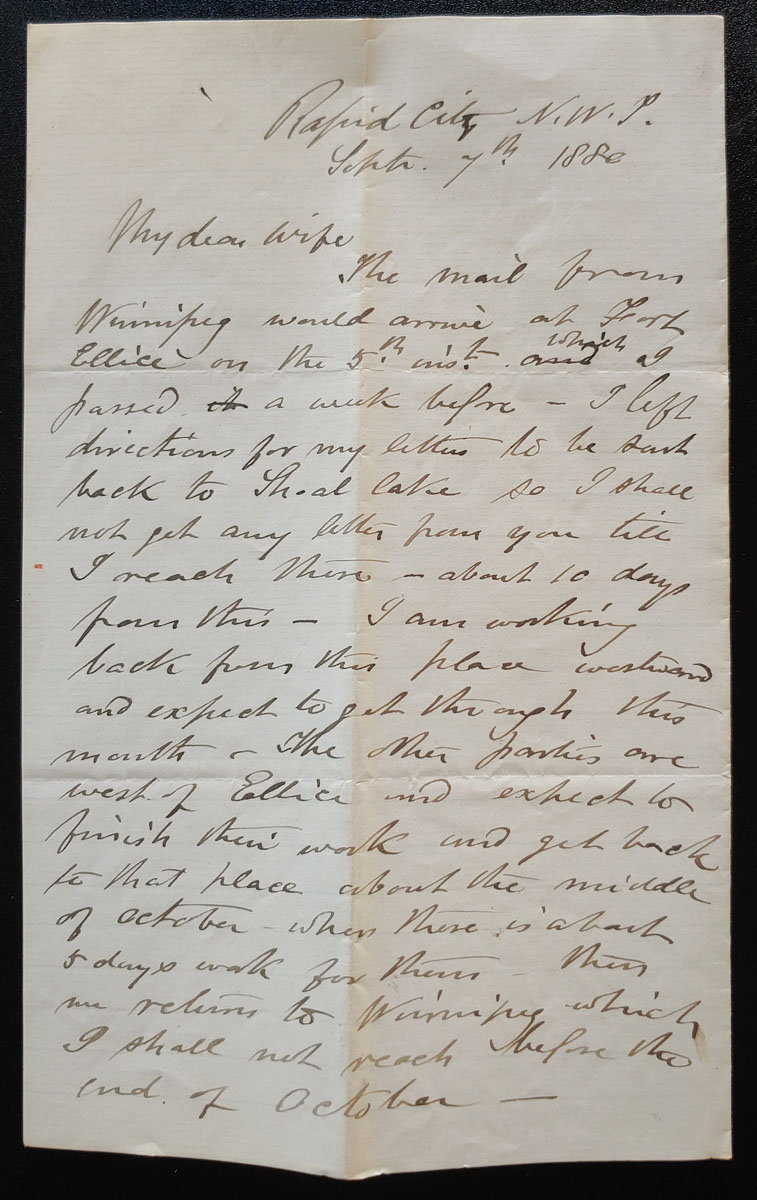 Rapid City N.W.T.
Sept. 7th. 1880
My dear Wife
The mail from
Winnipeg would arrive at Fort
Ellice on the 5th. inst. which I
passed a week before - I left
directions for my letters to be sent
back to Shoal Lake so I shall
not get any letter from you till
I reach there - about 10 days
from this - I am working
back from this place westward
and expect to get through this
month - The other parties are
west of Ellice and expect to
finish their work and get back
to that place about the middle
of October - when there is about
5 days work for them - then
we return to Winnipeg which
I shall not reach before the
end of October -